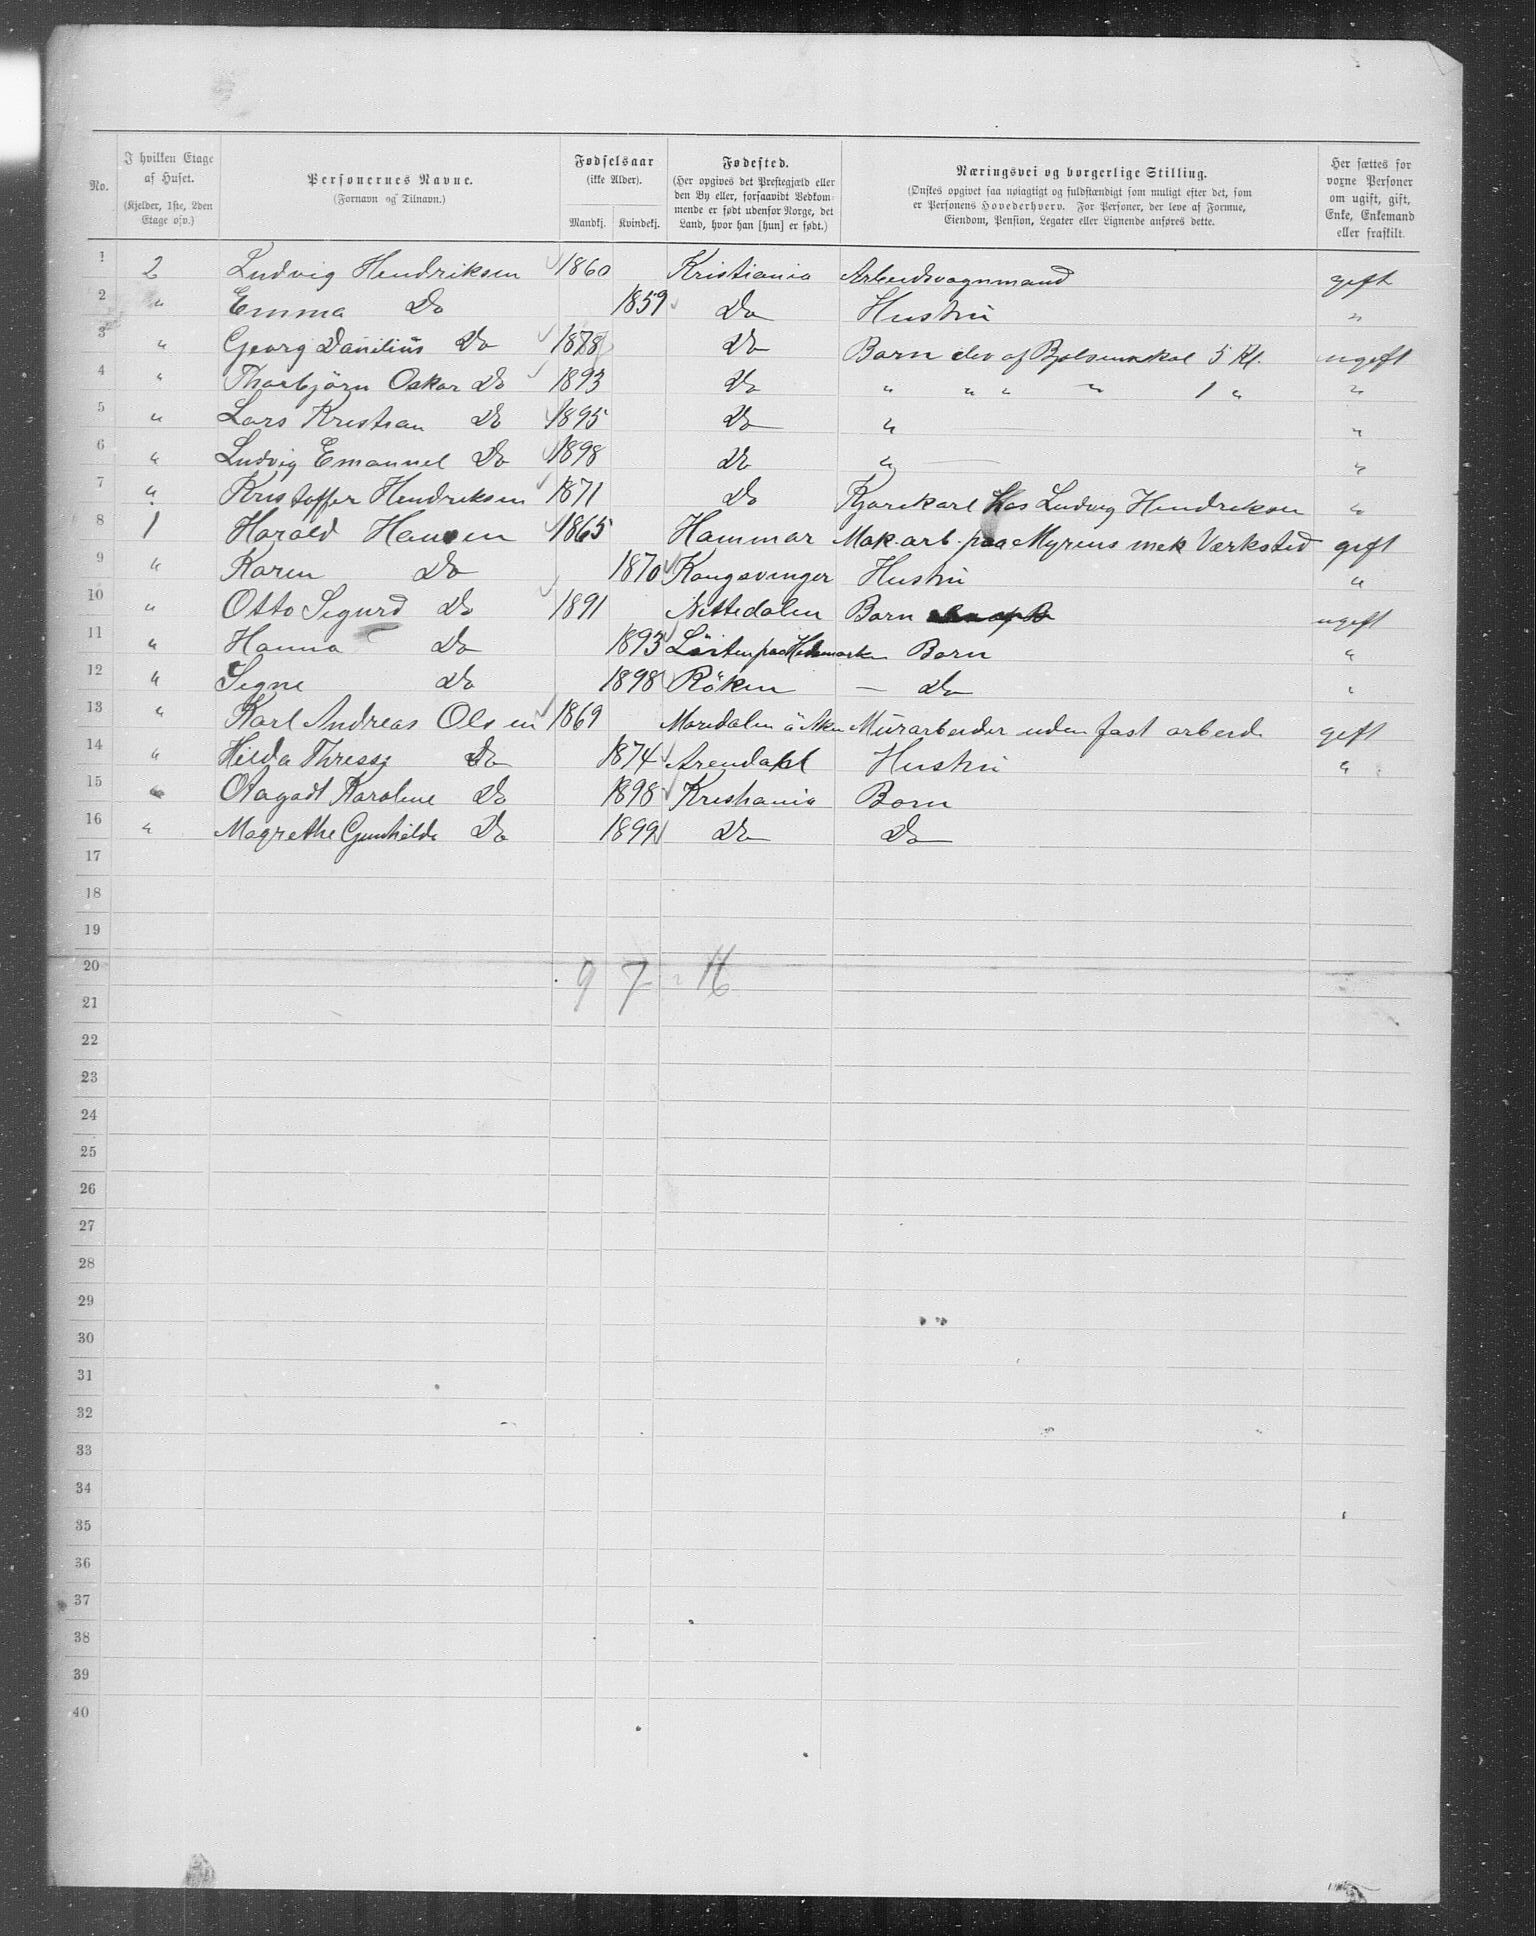 No. I hvilken Etage af Huset. (Kjelder, 1ste, 2den Etage osv.) Personernes Navne. (Fornavn og Tilnavn.) Fødselsaar (ikke Alder). Mandkj. Kvindekj. Fødested. (Her opgives det Prestegjæld eller den By eller, forsaavidt Vedkommende er født udenfor Norge, det Land, hvor han [hun] er født.) Næringsvei og borgerlige Stilling. (Ønskes opgivet saa nøiagtigt og fuldstændigt som muligt efter det, som er Personens Hovederhverv. For Personer, der leve af Formue, Eiendom, Pension, Legater eller Lignende anføres dette. Her sættes for voxne Personer om ugift, gift, Enke, Enkemand eller fraskilt.
1 2 Ludvig Hendriksen 1860 Kristiania Arbeidsvognmand gift
2 " Emma Do 1859 Do Hustru "
3 " Georg Danilius Do 1888 Do Barn elev af Bjølsenskol 5 Kl. ugift
4 " Thorbjörn Oskar Do 1893 Do " " " " 1 " "
5 " Lars Kristian Do 1895 Do " "
6 " Ludvig Emanuel Do 1898 Do " "
7 " Kristoffer Hendriksen 1871 Do Kjørekarl hos Ludvig Hendriksen "
8 1 Harald Hansen 1865 Hammar Mak. arb. paa Myrens mek Værksted gift
9 " Karen Do 1870 Kongsvinger Hustru "
10 " Otto Sigurd Do 1891 Nittedalen Barn ugift
11 " Hanna Do 1893 Löiten paa Hedemarken Barn "
12 " Signe Do 1898 Röken — Do "
13 " Karl Andreas Olsen 1869 Maridalen Murarbeider uden fast arbeid gift
14 " Hilda Do 1874 Arendahl Hustru "
15 " Karoline Do 1898 Kristiania Barn
16 " Magrethe Gunhilda Do 1899 Do Do
17
18
19
20 9 7 = 16
21
22
23
24
25
26
27
28
29
30
31
32
33
34
35
36
37
38
39
40